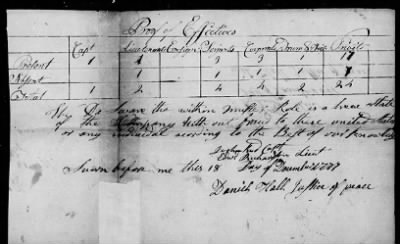 Proof of Effectives
Capt Lieutenants Ensign Serjants Corporals Drum & Fife Privit
Present 1 1 3 3 1 17
Absent 1 1 1 1 7
Total 1 2 4 4 2 24
We Do Sware the within muster Role is a true State
of the Company with out fraud to these united States
or any individual acording to the Best of our knowledg
Capt
Lieut
Sworn before me this 18 Day of December 1777
Daniel Hall Justice of peace